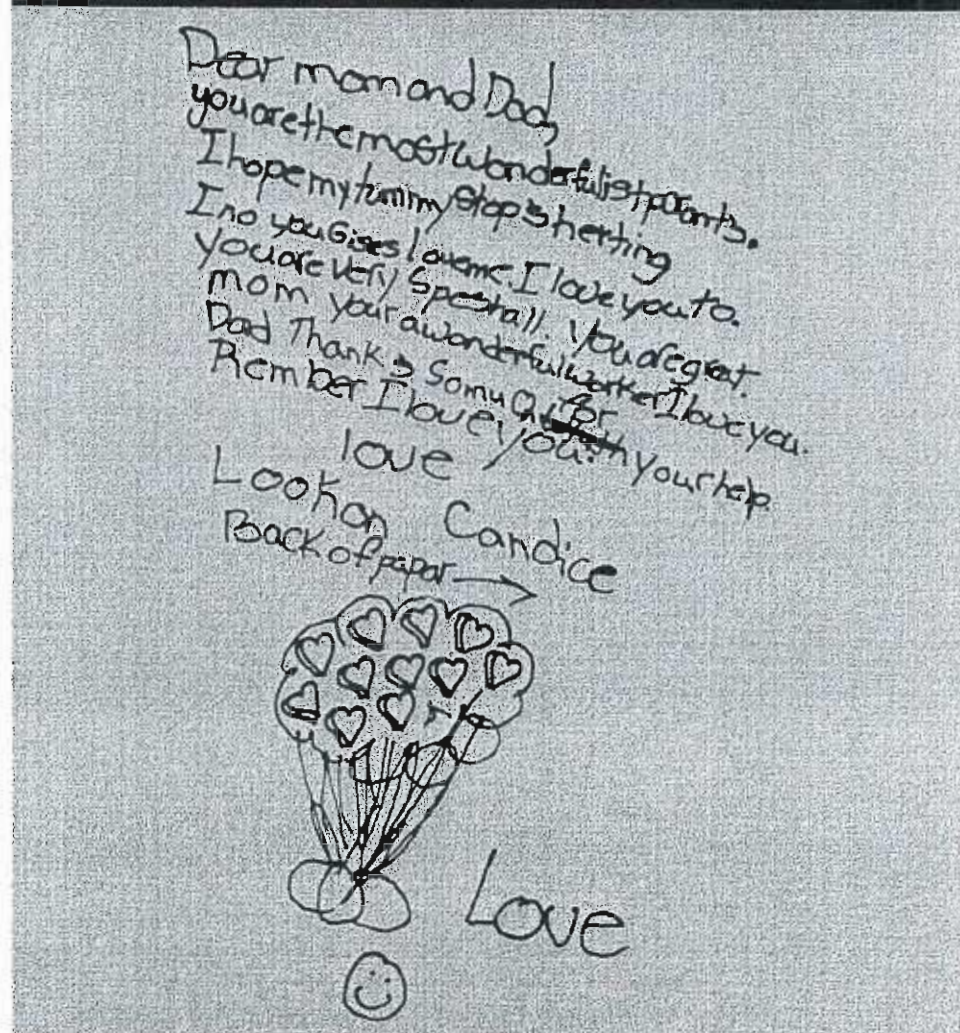 Dear mom and Dad,
you are the most wonderfulist parants.
I hope my tummy stop's herting
I no you Gises love me. I love you to.
you are very Speshall. you are great.
mom your a wonderful worker I love you.
Dad Thanks So much for your help
Rember I love you.
love
Candice
Look on
Back of papar
Love